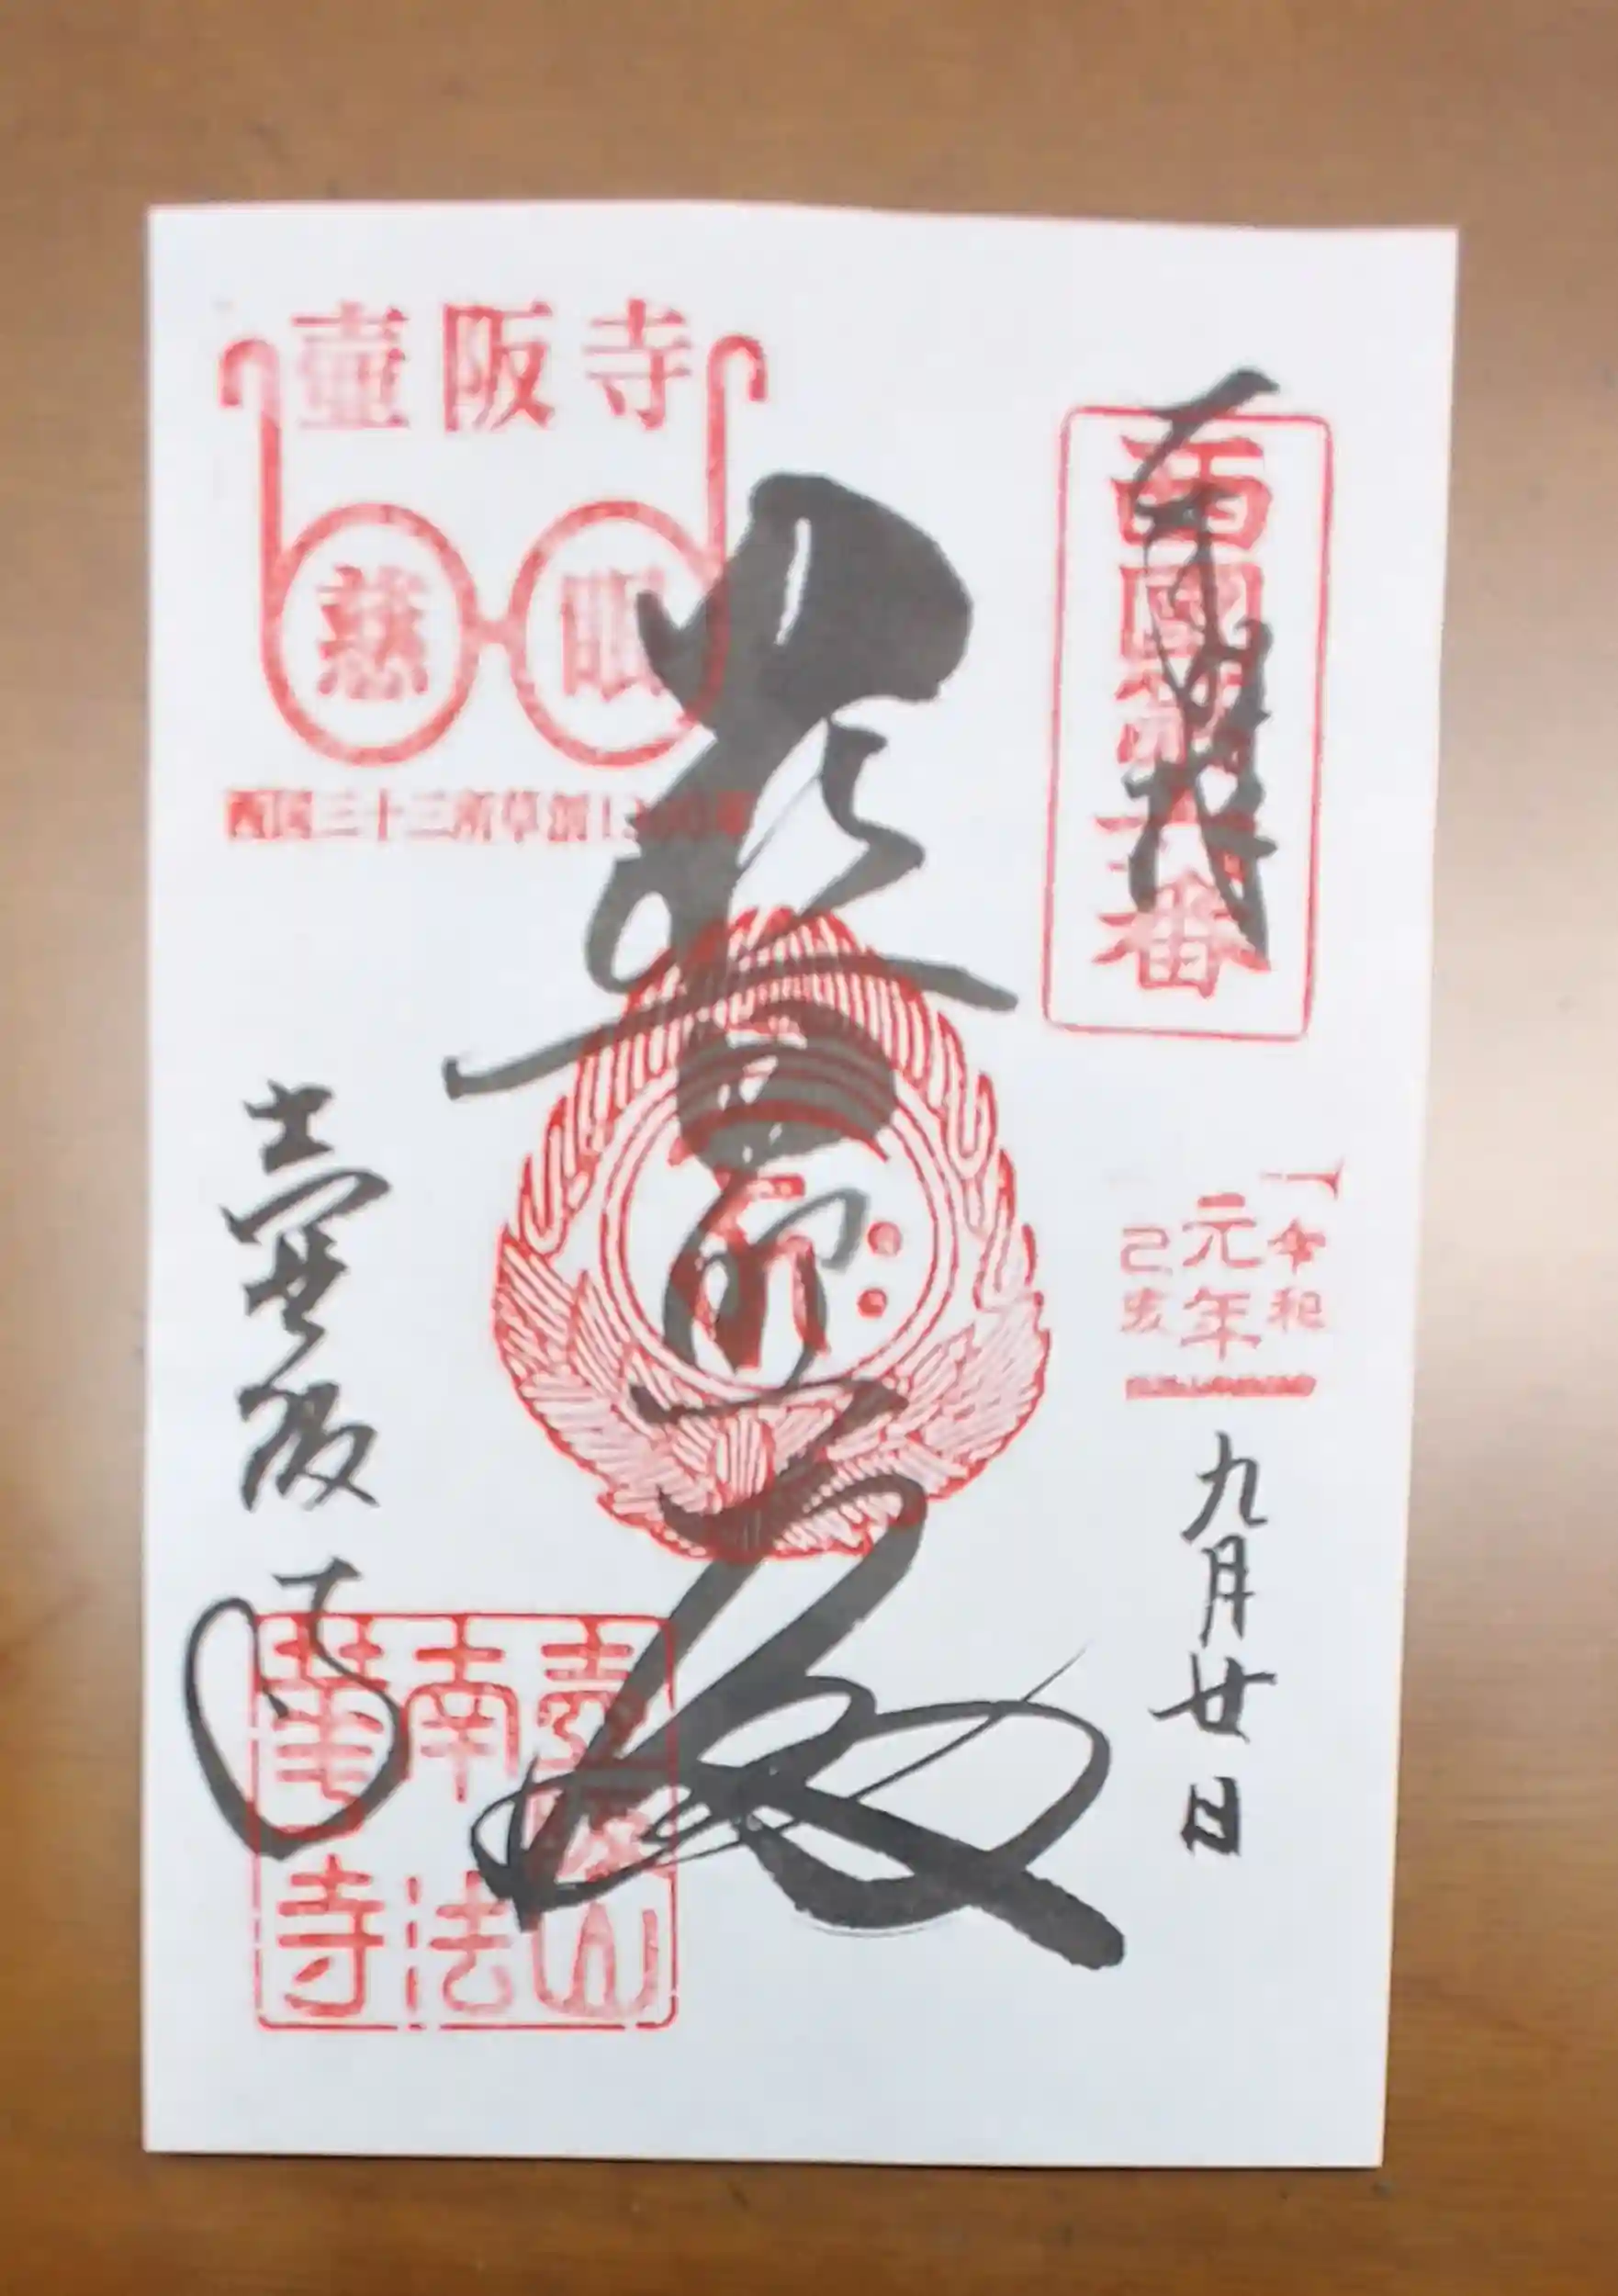 西國第六番
令和
元年
己亥
九月廿日
壷阪寺
慈眼
西国三十三所草創1300年
壷阪寺
壷阪山
南法
華寺